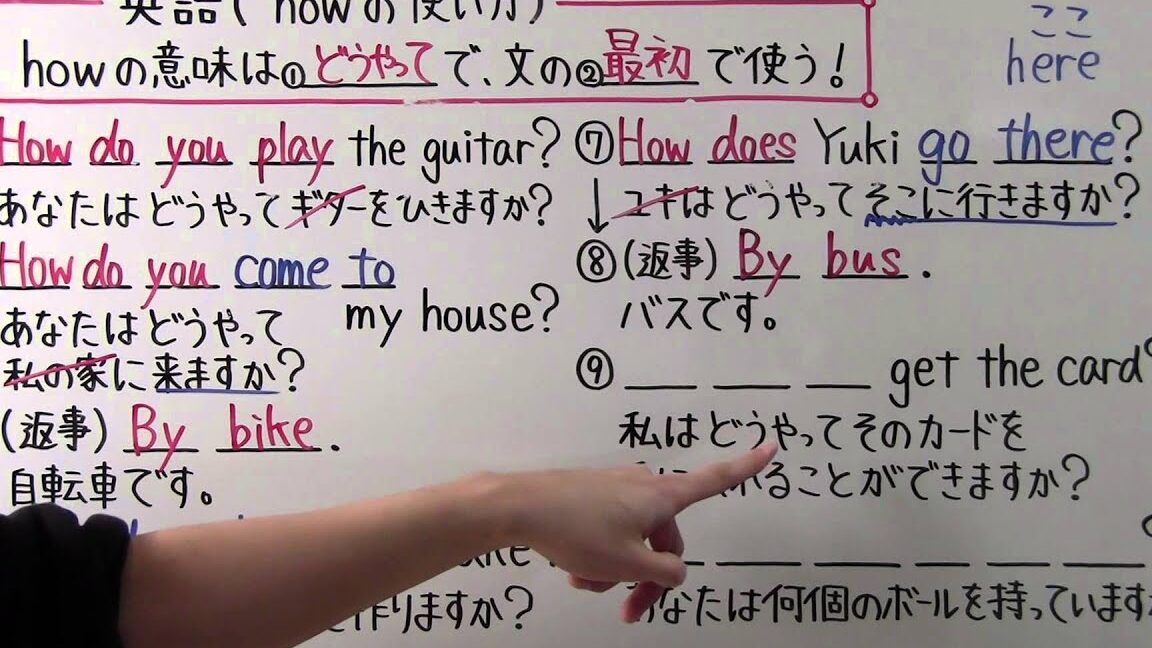 英語（howの使い方）
howの意味は①どうやってで、文の②最初で使う！
ここ
here
How do you play the guitar?
あなたはどうやってギターをひきますか？
How do you come to
my house?
あなたはどうやって
私の家に来ますか？
(返事) By bike.
自転車です。
作りますか？
⑦How does Yuki go there?
↓ユキはどうやってそこに行きますか？
⑧(返事) By bus.
バスです。
⑨___ ___ ___ get the card?
私はどうやってそのカードを
れることができますか？
あなたは何個のボールを持っていますか